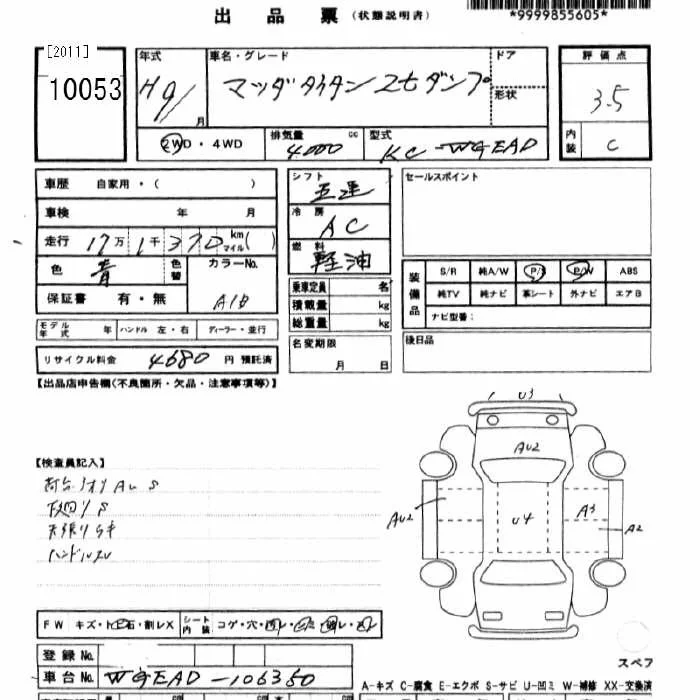 出品票 (状態説明書)
*9999855605*
[2011]
10053
年式 H9/ 月
車名・グレード マツダタイタン 2tダンプ
ドア
形状
評価点 3.5
内装 C
2WD・4WD
排気量 4000 cc
型式 KC-WGEAD
車歴 自家用・( )
車検 年 月
走行 17万1千370 km マイル ( )
色 青 色替
カラーNo. A1B
保証書 有・無
モデル年式 年 ハンドル 左・右 ディーラー・並行
リサイクル料金 4680 円 預託済
シフト 五速
冷房 AC
燃料 軽油
乗車定員 名
積載量 kg
総重量 kg
名変期限 月 日
セールスポイント
装備品
S/R 純A/W P/S P/W ABS
純TV 純ナビ 革シート 外ナビ エアB
ナビ型番:
後日品
【出品店申告欄(不良箇所・欠品・注意事項等)】
【検査員記入】
荷台 AU S
下廻り S
天張り
ハンドルスレ
U3
AU2
AU2
U4
A3
A2
FW キズ・トビ石・割レX
シート内装 コゲ・穴・
登録No.
車台No. WGEAD-106350
スペア
A-キズ C-腐食 E-エクボ S-サビ U-凹ミ W-補修 XX-交換済